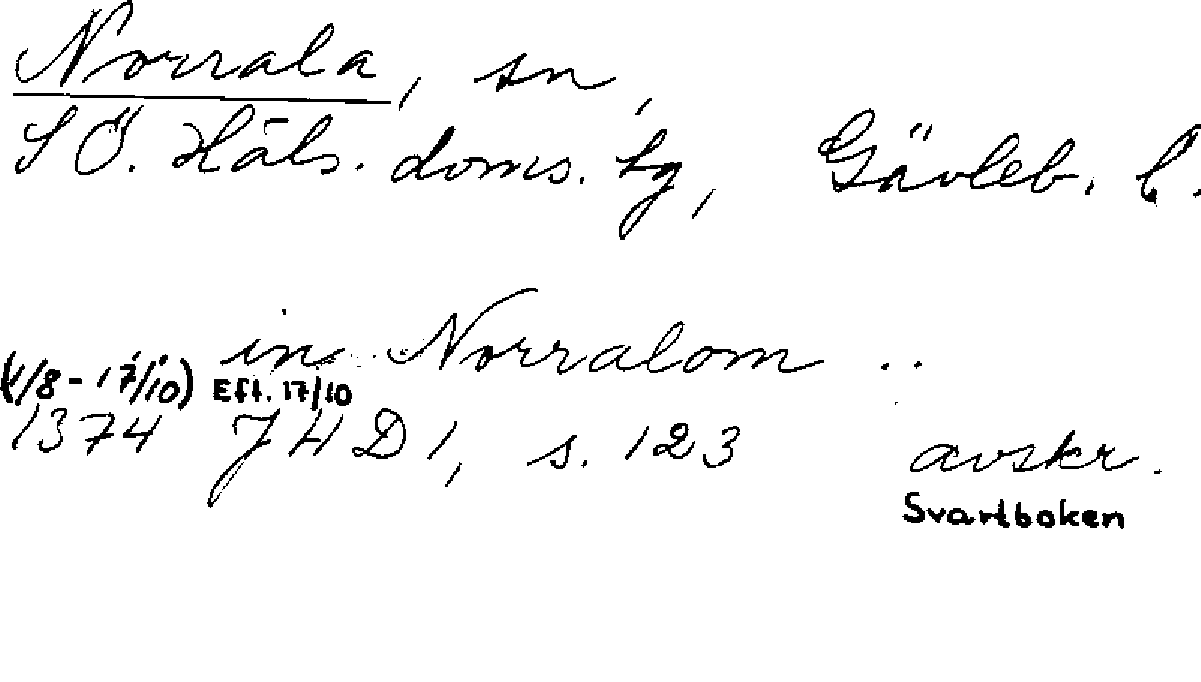 Norrala, sn,
SÖ. Häls. doms. hg, Gävleb. l.
in Norralom ..
(1/8 - 17/10) Eft. 17/10
1374 JHD 1, s. 123 avskr.
Svartboken